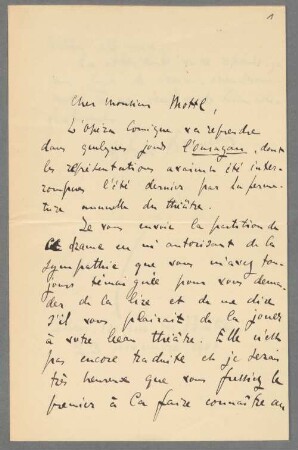 1
Cher Monsieur Mottl,
L'Opéra Comique va reprendre
dans quelques jours l'ouragan, dont
les représentations avaient été inter-
rompues l'été dernier par la ferme-
ture annuelle du théâtre.
Je vous envoie la partition de
ce drame en m'autorisant de la
sympathie que vous m'avez tou-
jours témoignée pour vous deman-
der de la lire et de me dire
s'il vous plairait de la jouer
à votre beau théâtre. Elle n'est
pas encore traduite et je serais
très heureux que vous fussiez le
premier à la faire connaître au